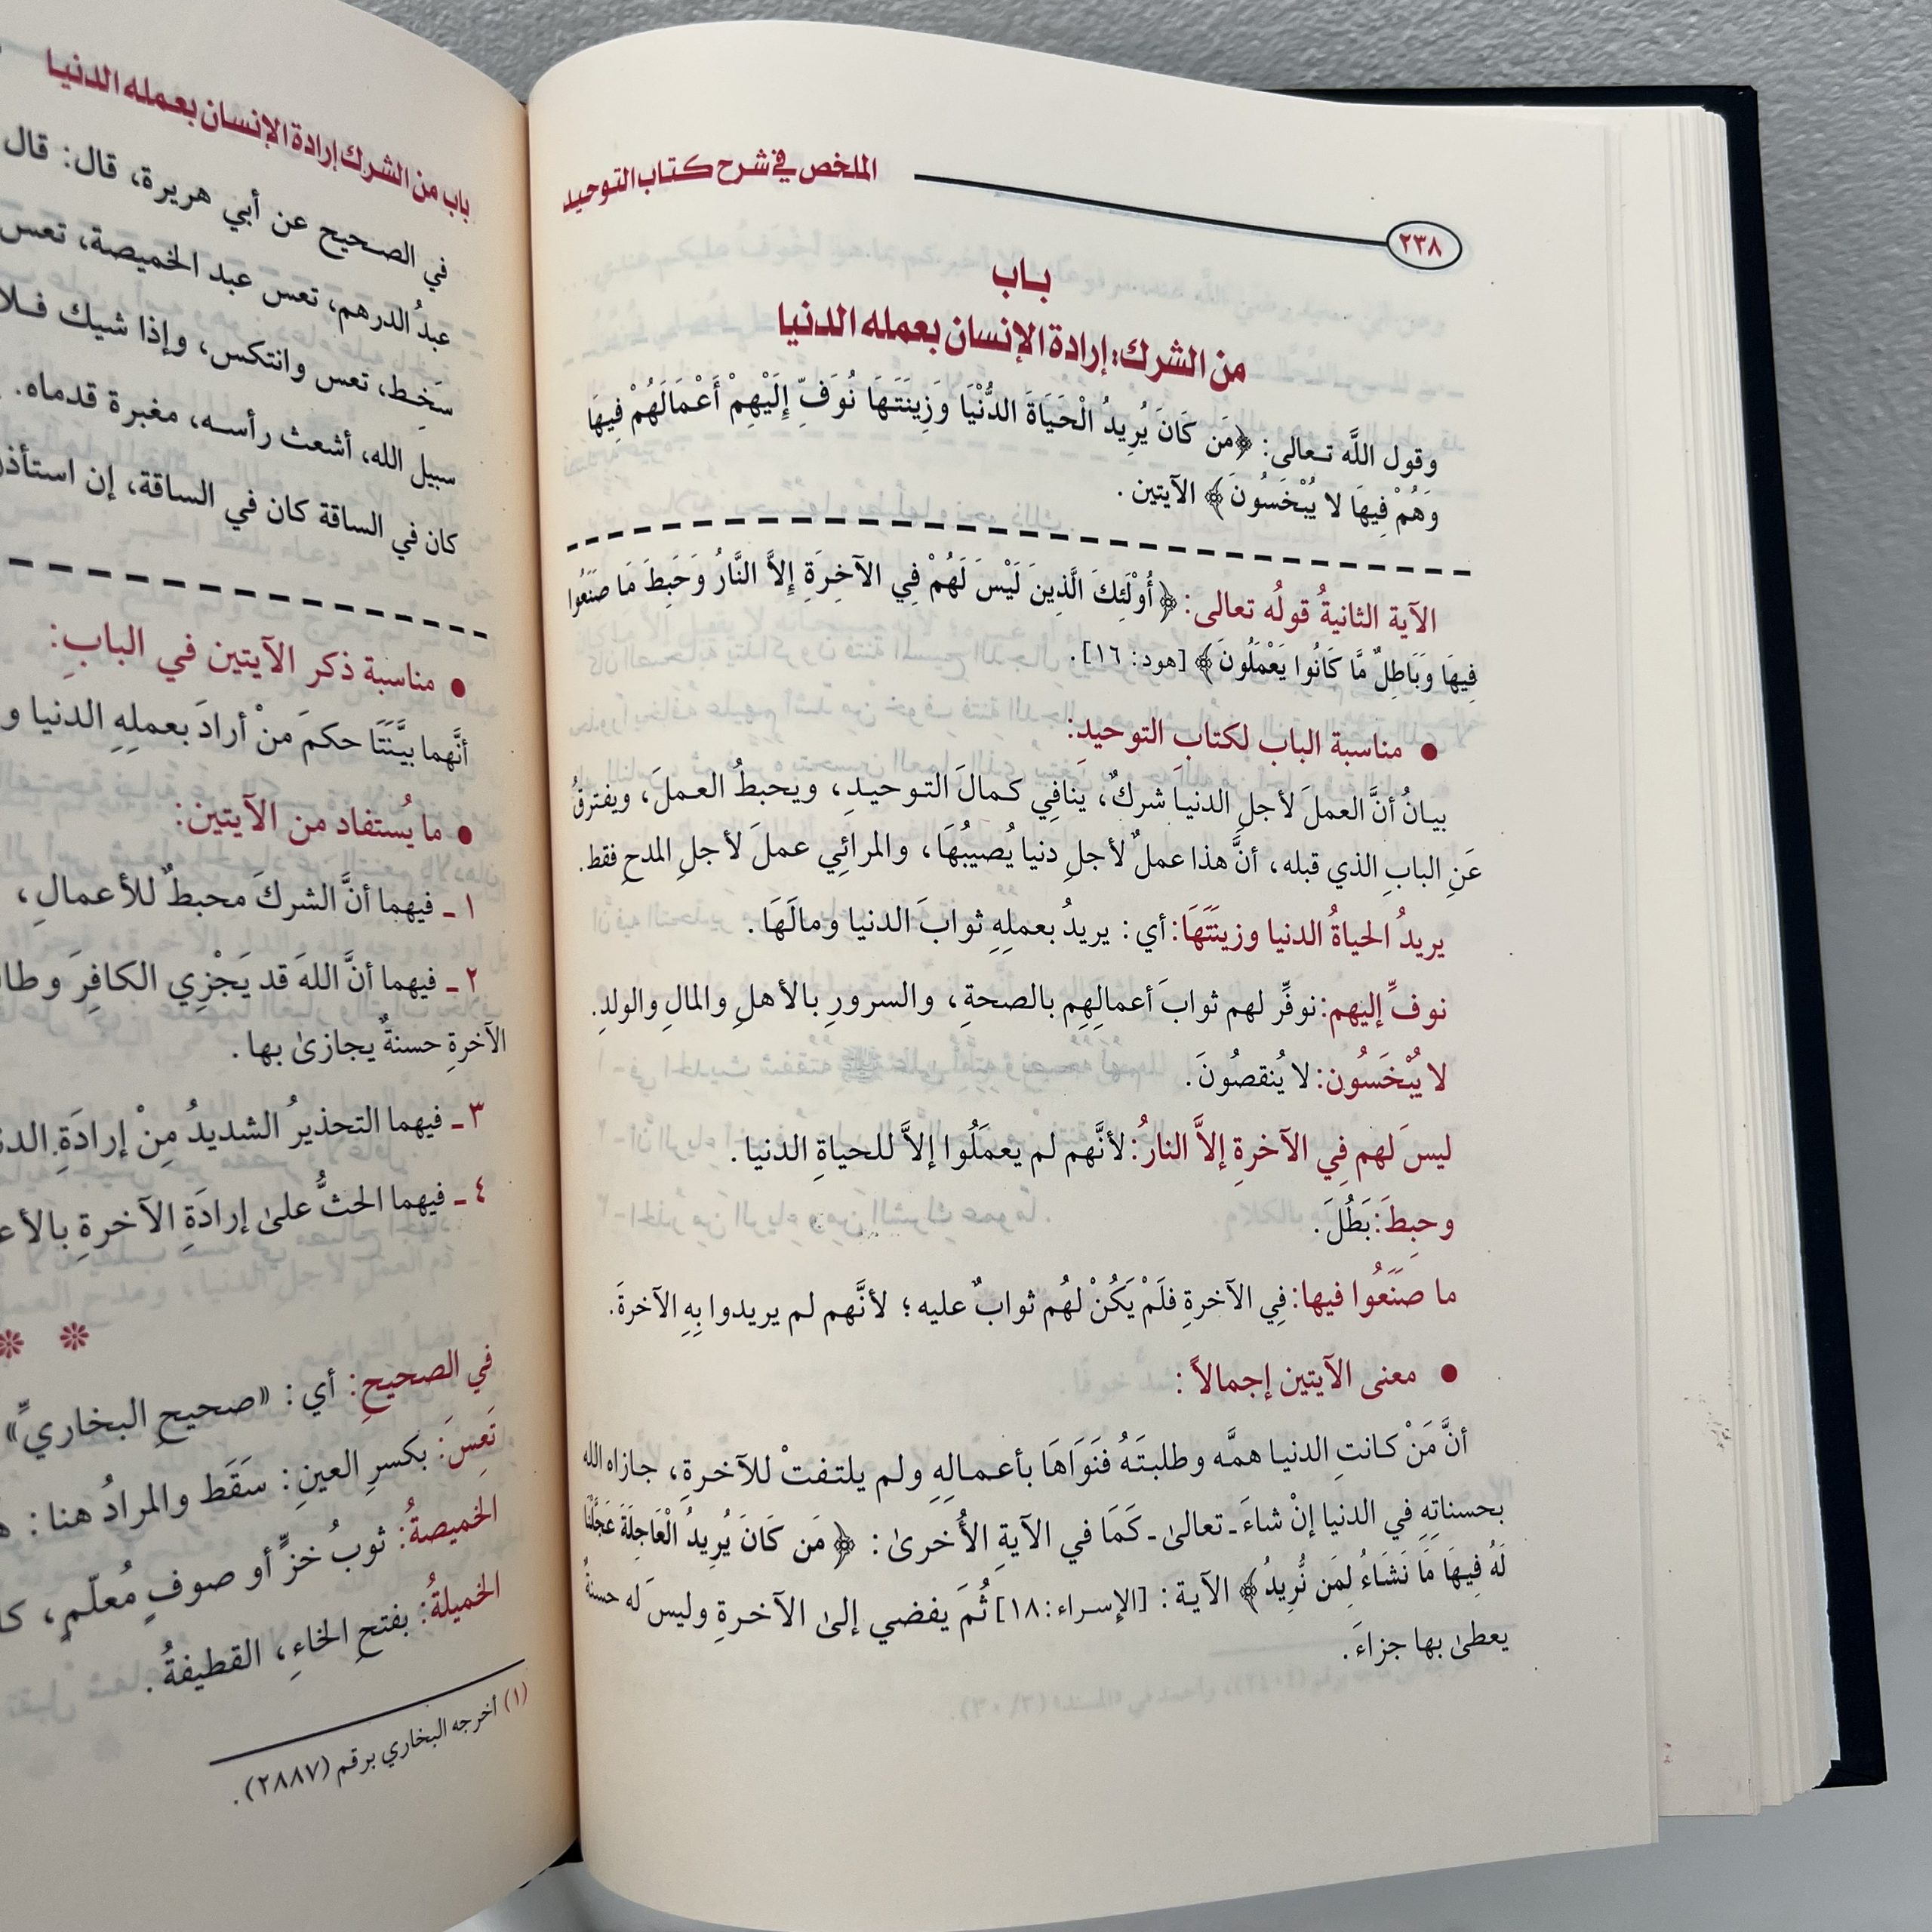 ٢٣٨
الملخص في شرح كتاب التوحيد
بـاب
من الشرك: إرادة الإنسان بعمله الدنيا
وقول اللَّه تـعالى: ﴿مَن كَانَ يُرِيدُ الْحَيَاةَ الدُّنْيَا وَزِينَتَهَا نُوَفِّ إِلَيْهِمْ أَعْمَالَهُمْ فِيهَا
وَهُمْ فِيهَا لا يُبْخَسُونَ﴾ الآيتين.
الآية الثانيةُ قولُه تعالى: ﴿أُوْلَئِكَ الَّذِينَ لَيْسَ لَهُمْ فِي الآخِرَةِ إِلاَّ النَّارُ وَحَبِطَ مَا صَنَعُوا
فِيهَا وَبَاطِلٌ مَّا كَانُوا يَعْمَلُونَ﴾ [هود: ١٦].
● مناسبة الباب لكتابِ التوحيدِ:
بيـانُ أنَّ العملَ لأجلِ الدنيـا شركٌ، يَنافِي كـمالَ التـوحيـدِ، ويحبطُ العـملَ، ويفترقُ
عَنِ البابِ الذي قبله، أنَّ هذا عملٌ لأجلِ دنيا يُصِيبُهَا، والمرائِي عملَ لأجلِ المدحِ فقط.
يريدُ الحياةُ الدنيا وزينَتَهَا: أي: يريدُ بعملِهِ ثوابَ الدنيا ومالَهَا.
نوفِّ إليهم: نوفِّر لهم ثوابَ أعمالِهِم بالصحةِ، والسرورِ بالأهلِ والمالِ والولدِ.
لا يُبْخَسُون: لا يُنقصُونَ.
ليسَ لهم فِي الآخرةِ إلاَّ النارُ: لأنَّهم لم يعمَلُوا إلاَّ للحياةِ الدنيا.
وحبِطَ: بَطُلَ.
ما صَنَعُوا فيها: فِي الآخرةِ فلَمْ يَكُنْ لهُم ثوابٌ عليه؛ لأنَّهم لم يريدوا بِهِ الآخرةَ.
● معنى الآيتين إجمالاً:
أنَّ مَنْ كـانتِ الدنيـا همَّه وطلبـتَهُ فنَوَاهَا بأعـمـالِهِ ولم يلتـفتْ للآخـرةِ، جازاه الله
بحسناتِهِ في الدنيا إنْ شاءَ ـ تعالىٰ ـ كَمَا في الآيةِ الأُخرىٰ: ﴿مَن كَانَ يُرِيدُ الْعَاجِلَةَ عَجَّلْنَا
لَهُ فِيهَا مَا نَشَاءُ لِمَن نُّرِيدُ﴾ الآيـة: [الإسـراء: ١٨] ثُمَ يفضـي إلىٰ الآخـرةِ وليسَ له حسنةٌ
يعطىٰ بها جزاءَ.
باب من الشرك إرادة الإنسان بعمله الدنيا
في الصحيح عن أبي هريرة، قال: قال
عبدُ الدرهم، تعس عبد الخميصة، تعس
سَخِـط، تعس وانتكس، وإذا شيك فـلا
سبيل الله، أشعث رأسـه، مغبرة قدماه.
كان في الساقة كان في الساقة، إن استأذن
● مناسبة ذكر الآيتين في البابِ:
أنَّهما بيَّنَتَا حكمَ مَنْ أرادَ بعملِهِ الدنيا و
● ما يُستفاد من الآيتين:
١ ـ فيهما أنَّ الشركَ محبطٌ للأعمالِ،
٢ ـ فيهما أنَّ اللهَ قد يَجْزِي الكافِرَ
الآخرةِ حسنةٌ يجازىٰ بها.
٣ ـ فيهما التحذيرُ الشديدُ مِنْ إرادَةِ
٤ ـ فيهما الحثُّ علىٰ إرادَةِ الآخرةِ
في الصحيحِ: أي: «صحيحِ البخاريِّ»
تَعِسَ: بكسرِ العينِ: سَقَط والمرادُ هنا:
الخميصةُ: ثوبُ خزٍّ أو صوفٍ مُعلّمٍ،
الخميلةُ: بفتحِ الخاءِ، القطيفةُ.
(١) أخرجه البخاري برقم (٢٨٨٧).